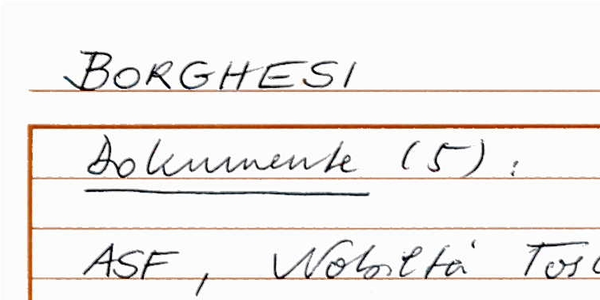 BORGHESI
Dokumente (5):
ASF, Nobiltà